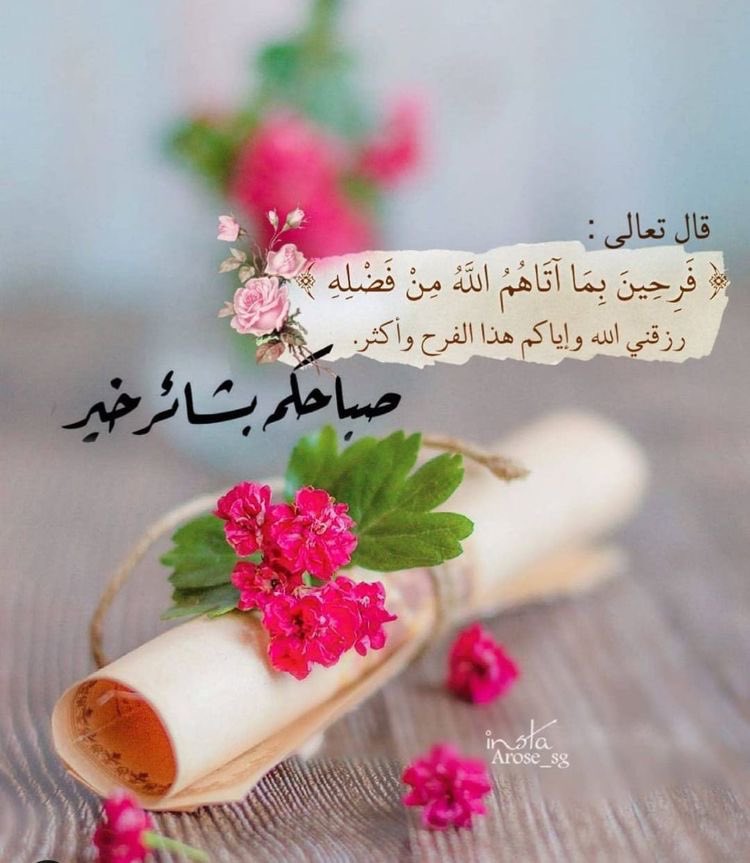 قال تعالى :
﴿ فَرِحِينَ بِمَا آتَاهُمُ اللَّهُ مِنْ فَضْلِهِ ﴾
رزقني الله وإياكم هذا الفرح وأكثر.
صباحكم بشائر خير
insta
Arose_sg